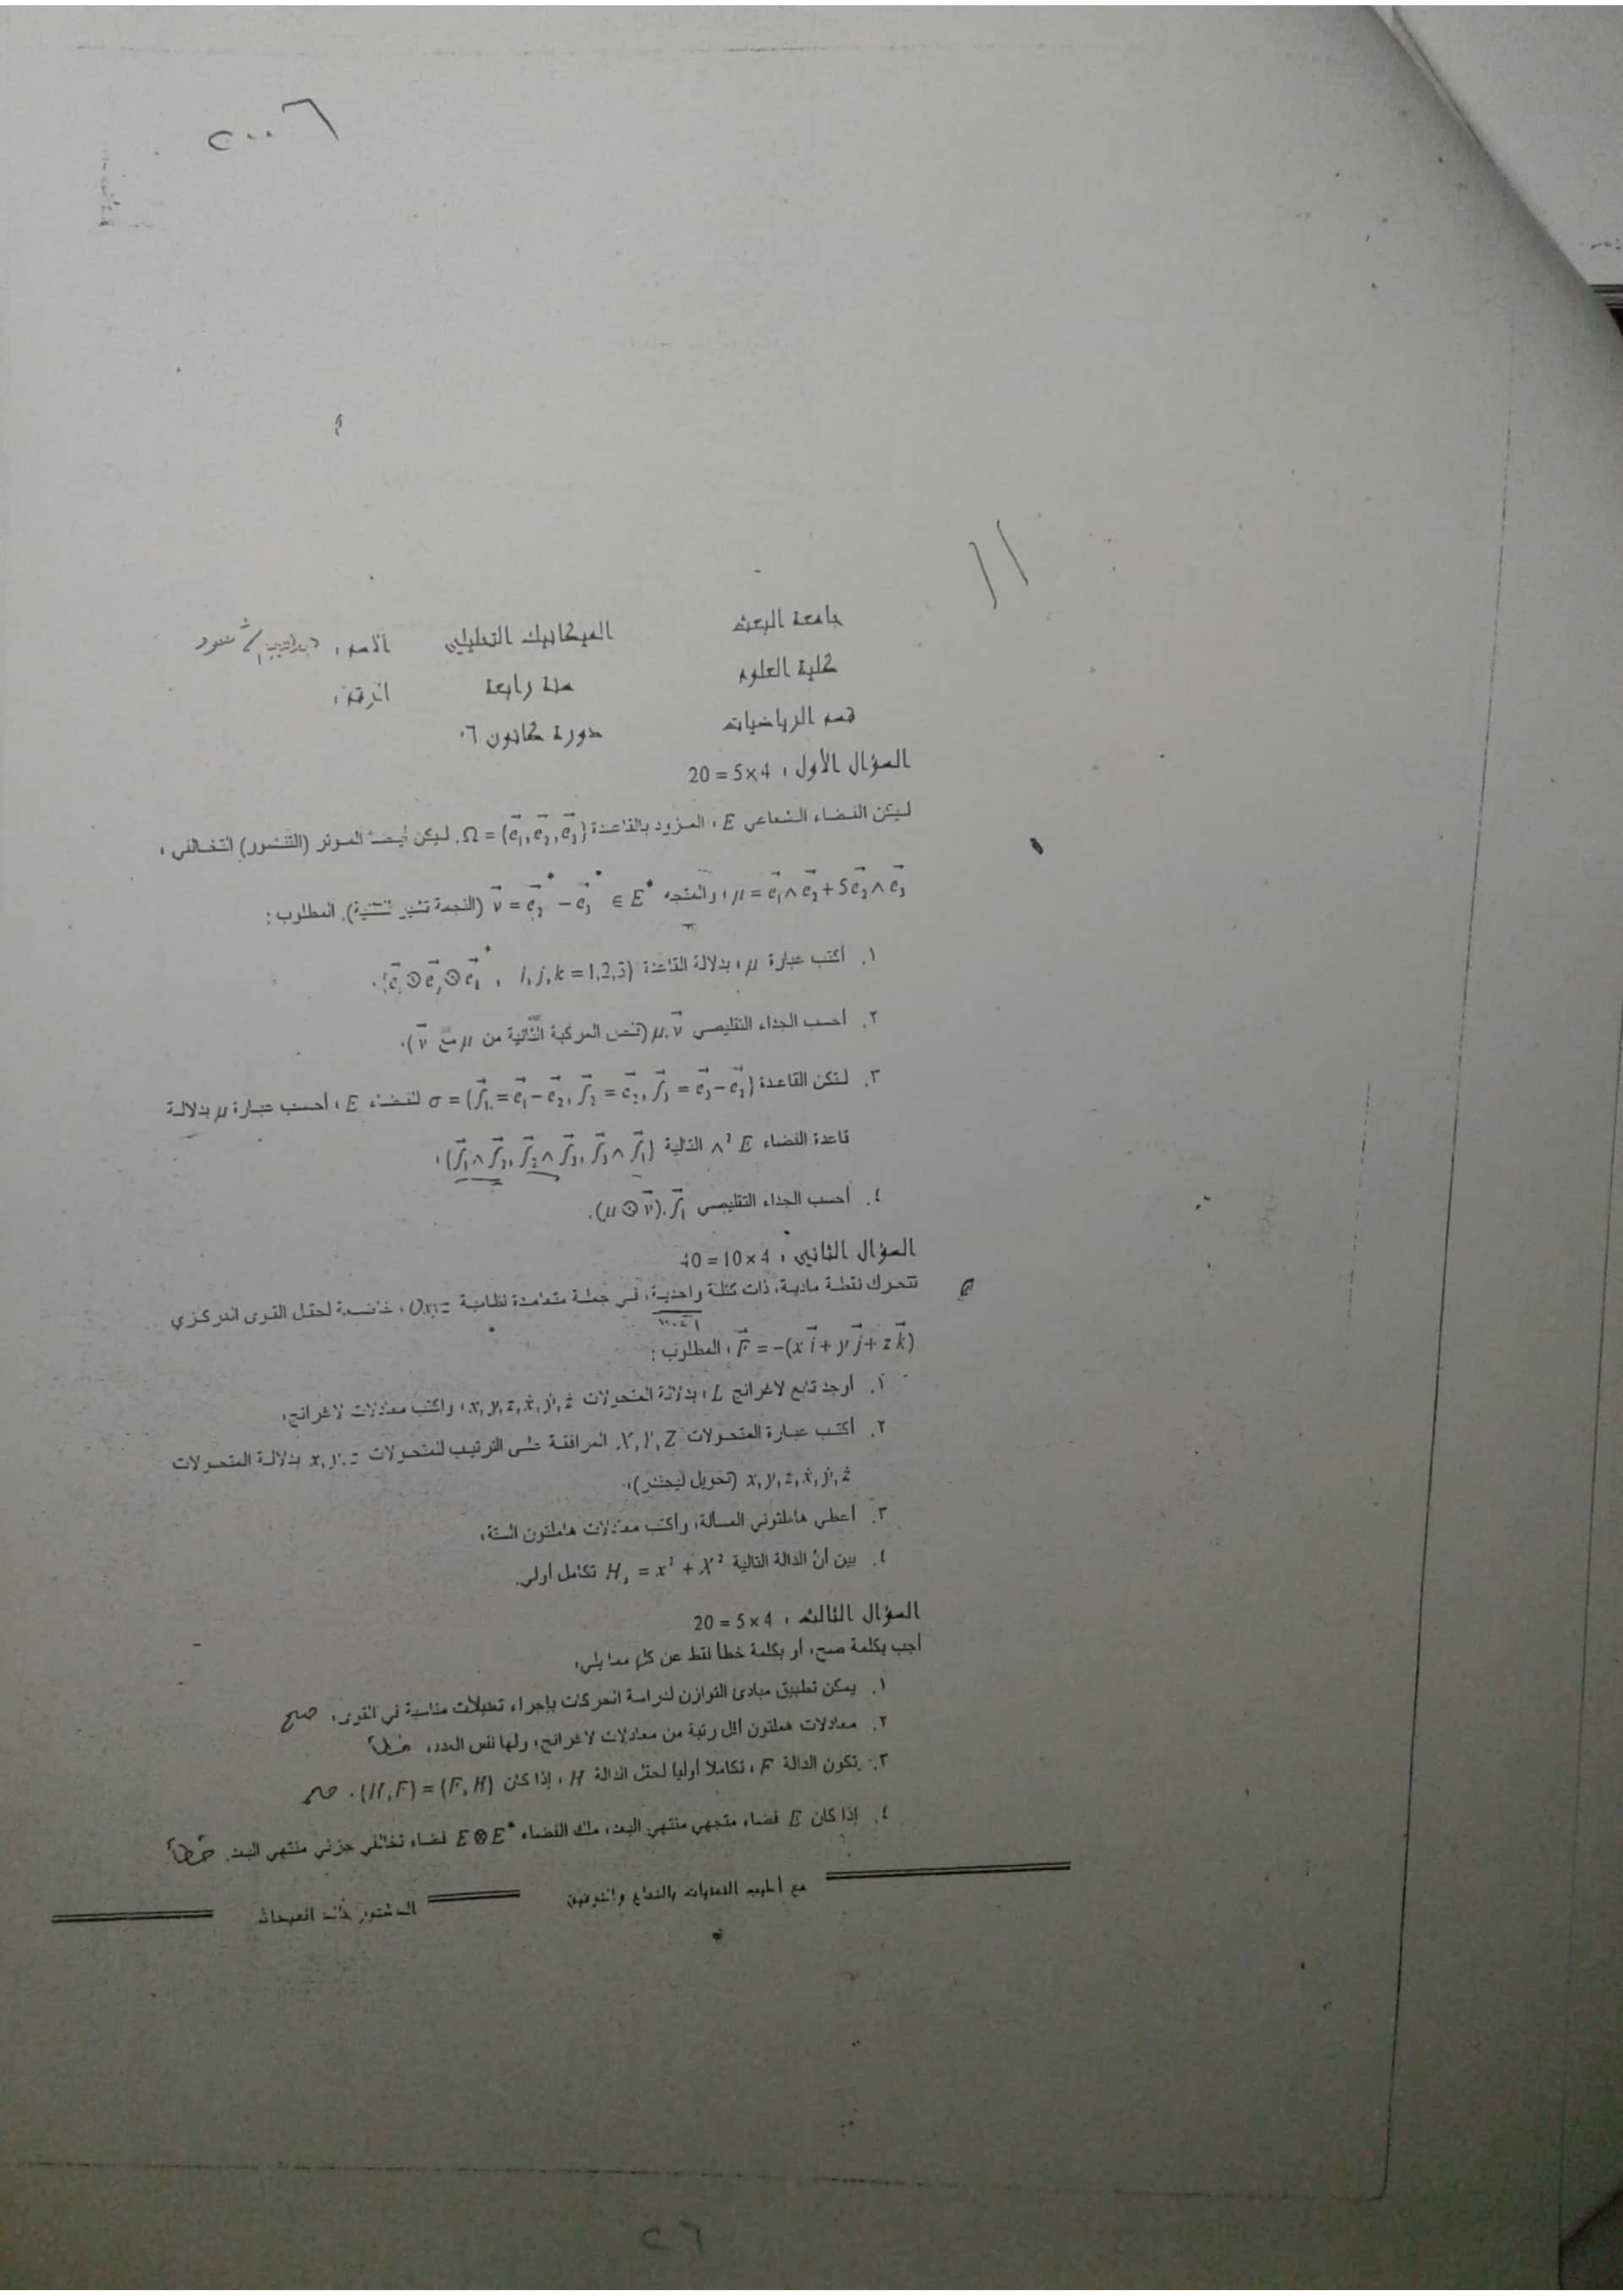 ٢٠٠٦
جامعة البعث الميكانيك التحليلي الاسم :
كلية العلوم سنة رابعة الرقم :
قسم الرياضيات دورة كانون ٠٦
السؤال الأول : 20 = 5×4
ليكن الفضاء الشعاعي E ، المزود بالقاعدة Ω = (e₁, e₂, e₃). ليكن أيضاً الموتر (التنسور) التخالفي ،
μ = e₁ ∧ e₂ + 5e₂ ∧ e₃ ، والمتجه v = e₂* − e₃* ∈ E* (النجمة تشير للثنوية). المطلوب :
١. أكتب عبارة μ ، بدلالة القاعدة
٢. أحسب الجداء التقليصي μ.v (قلص المركبة الثانية من μ مع v).
٣. لتكن القاعدة σ = (f₁ = e₁ − e₂, f₂ = e₂, f₃ = e₃ − e₂) للفضاء E ، أحسب عبارة μ بدلالة
قاعدة الفضاء ∧² E التالية (f₁ ∧ f₂, f₂ ∧ f₃, f₃ ∧ f₁) ،
٤. أحسب الجداء التقليصي (μ ⊙ v).f₁.
السؤال الثاني : 40 = 10×4
تتحرك نقطة مادية، ذات كتلة واحدية، في جملة متعامدة نظامية Oxyz ، خاضعة لحقل القوى المركزي
F = −(x i + y j + z k) ، المطلوب :
١. أوجد تابع لاغرانج L ، بدلالة المتحولات x, y, z, ẋ, ẏ, ż ، واكتب معادلات لاغرانج،
٢. أكتب عبارة المتحولات X, Y, Z المرافقة على الترتيب للمتحولات x, y, z بدلالة المتحولات
x, y, z, ẋ, ẏ, ż (تحويل ليجندر)،
٣. أعطي هاملتوني المسألة، وأكتب معادلات هاملتون الستة،
٤. بين أن الدالة التالية H₁ = x² + X² تكامل أولي.
السؤال الثالث : 20 = 5×4
أجب بكلمة صح، أو بكلمة خطأ فقط عن كل مما يلي،
١. يمكن تطبيق مبادئ التوازن لدراسة الحركات بإجراء تعديلات مناسبة في القوى، صح
٢. معادلات هملتون أقل رتبة من معادلات لاغرانج، ولها نفس العدد، خطأ
٣. تكون الدالة F ، تكاملا أوليا لحقل الدالة H ، إذا كان (H,F) = (F,H) . صح
٤. إذا كان E فضاء متجهي منتهي البعد، فلك الفضاء E⊗E* فضاء تخالفي جزئي منتهي البعد. خطأ
مع أطيب التمنيات بالنجاح والتوفيق
٢٦